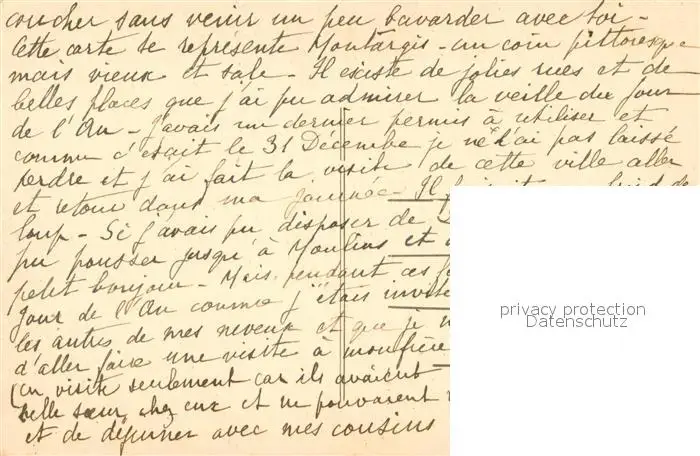 coucher sans venir un peu bavarder avec toi -
Cette carte te représente Montargis - un coin pittoresque
mais vieux et sale - Il existe de jolies rues et de
belles places que j'ai pu admirer la veille du Jour
de l'An - J'avais un dernier permis à utiliser et
comme c'était le 31 Décembre je ne l'ai pas laissé
perdre et j'ai fait la visite de cette ville aller
et retour dans ma journée - Il faisait un froid de
loup - Si j'avais pu disposer de
pu pousser jusqu'à Moulins et
petit bonjour - Mais pendant ces
Jour de l'An comme j'étais invité
les autres de mes neveux et que je
d'aller faire une visite à mon frère
(en visite seulement car ils avaient
belle sœur chez eux et ne pouvaient
et de déjeuner avec mes cousins
privacy protection
Datenschutz